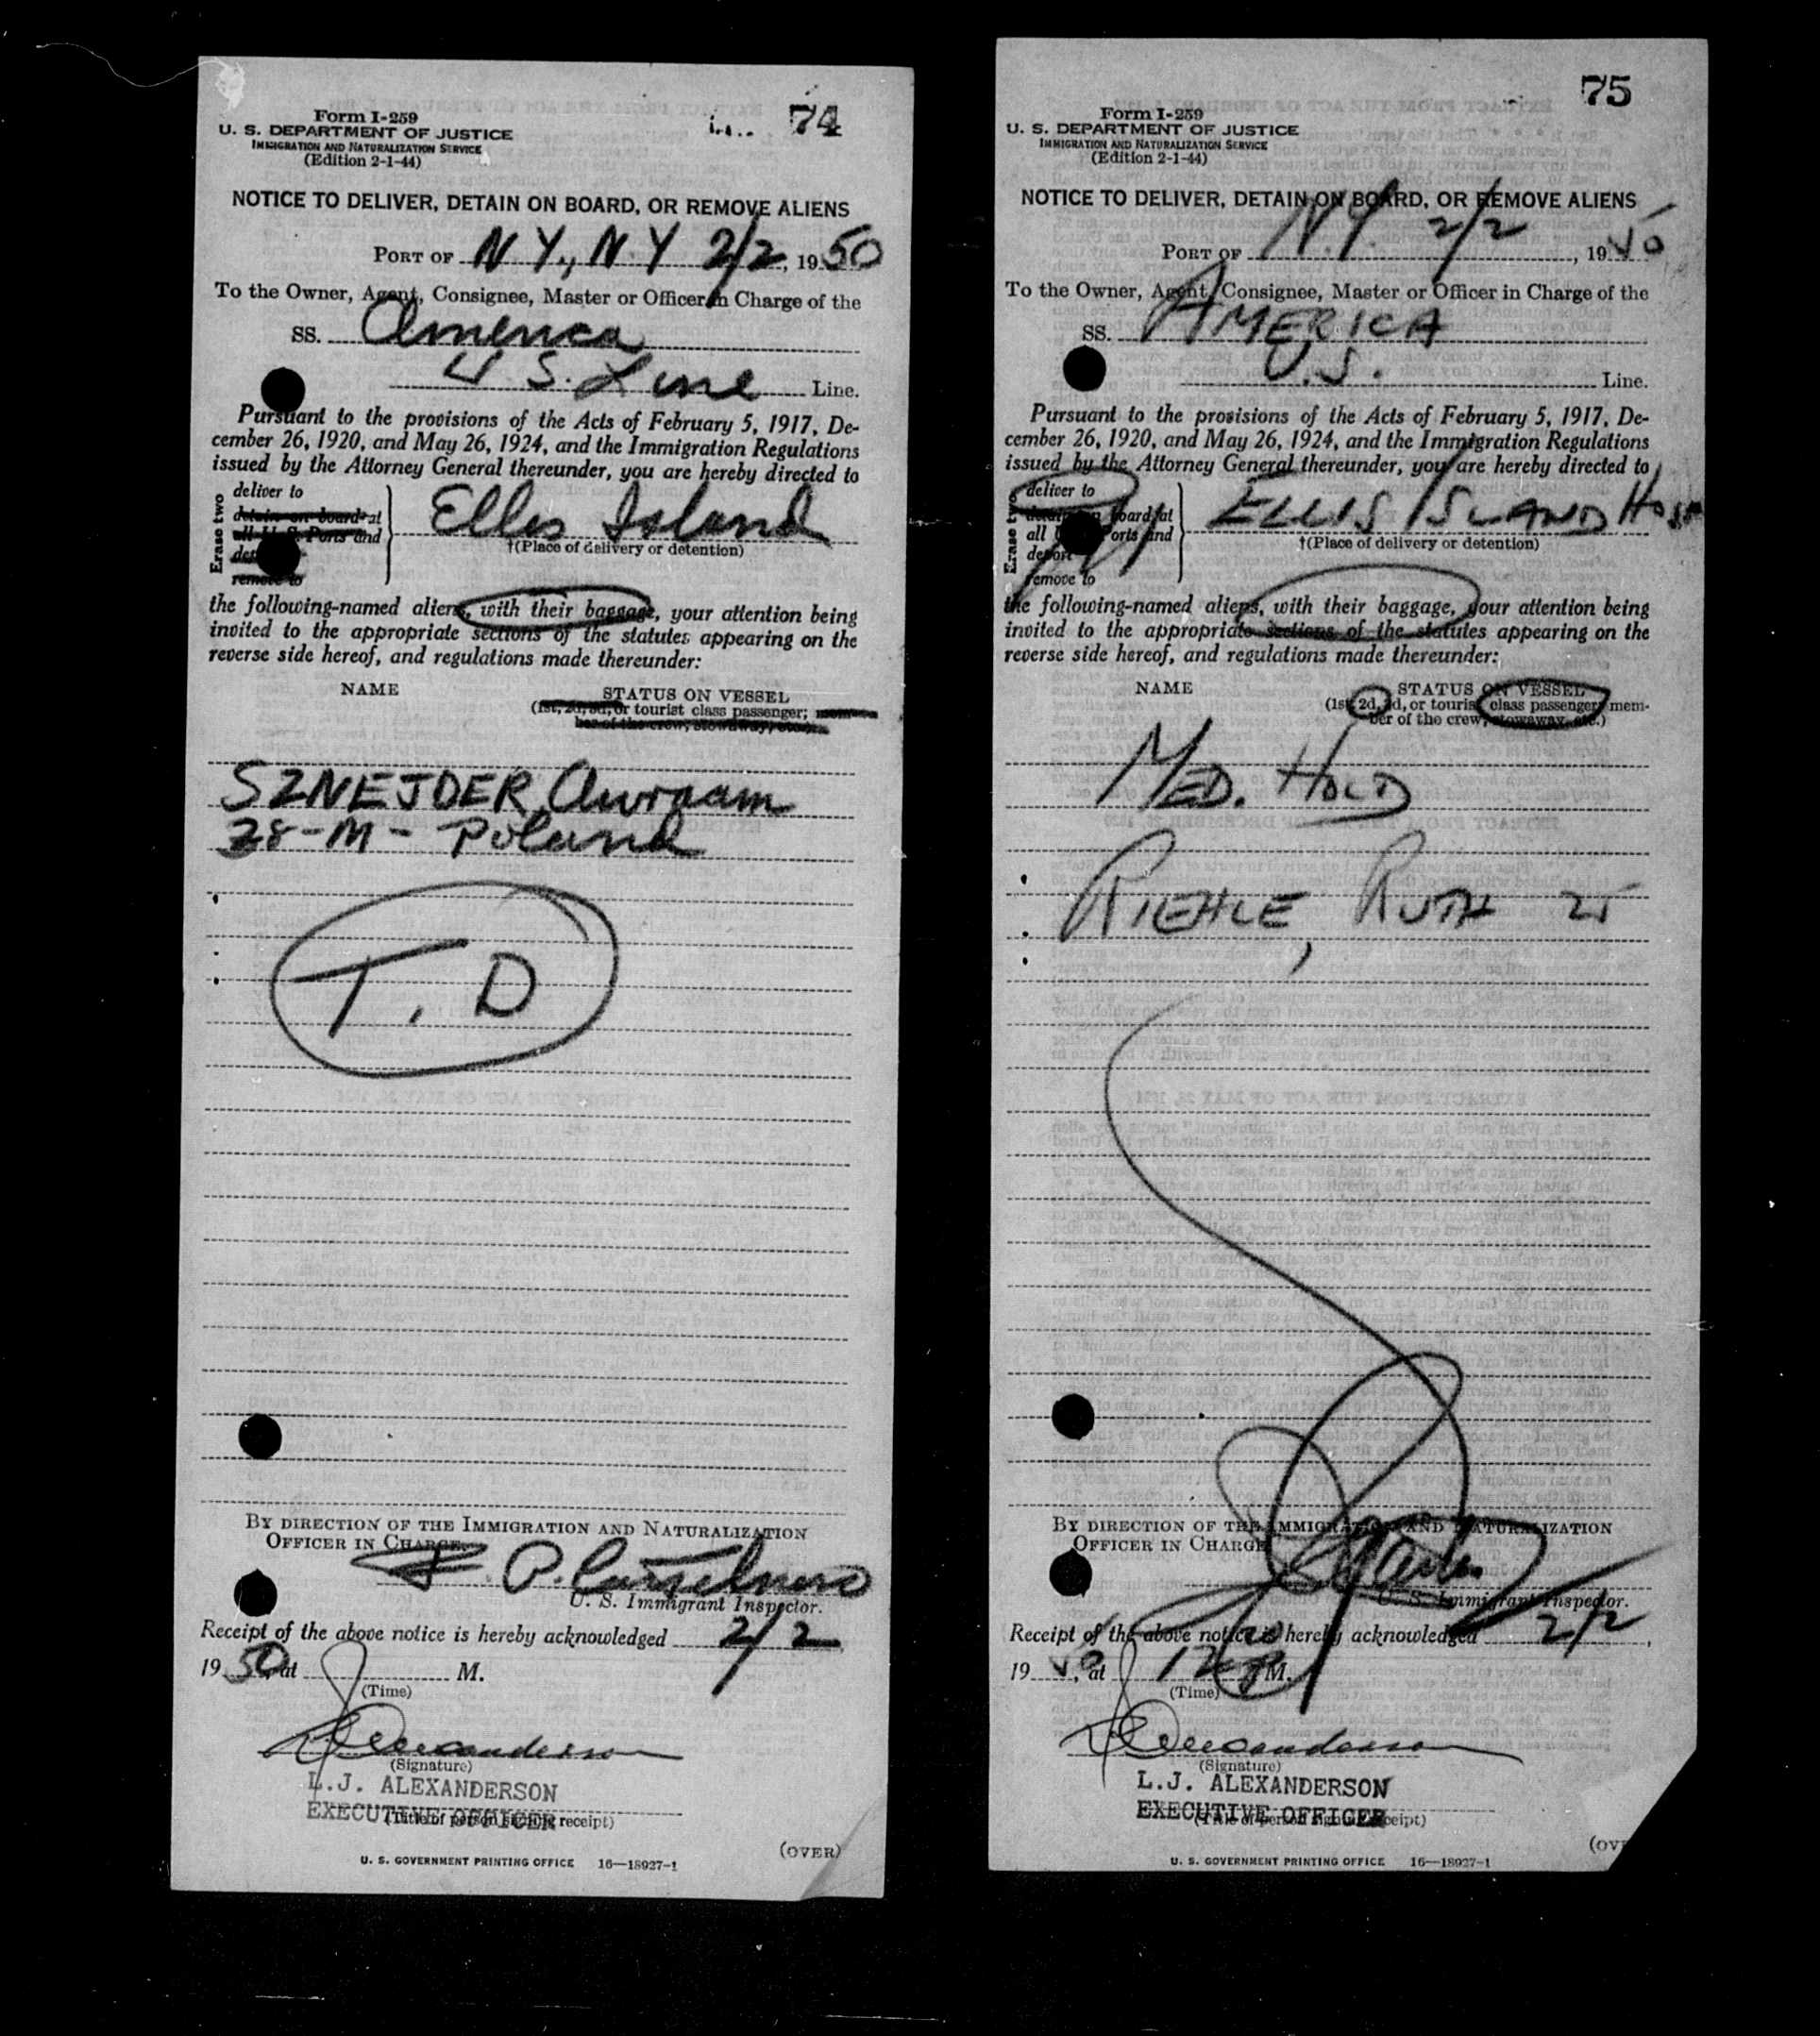 74
Form I-259
U. S. DEPARTMENT OF JUSTICE
IMMIGRATION AND NATURALIZATION SERVICE
(Edition 2-1-44)
NOTICE TO DELIVER, DETAIN ON BOARD, OR REMOVE ALIENS
PORT OF N Y., N. Y 2/2, 1950
To the Owner, Agent, Consignee, Master or Officer in Charge of the
SS. America
U S. Line Line.
Pursuant to the provisions of the Acts of February 5, 1917, De-
cember 26, 1920, and May 26, 1924, and the Immigration Regulations
issued by the Attorney General thereunder, you are hereby directed to
Erase two
deliver to
detain on board at
all U. S. Ports and
remove to
Ellis Island
†(Place of delivery or detention)
the following-named aliens, with their baggage, your attention being
invited to the appropriate sections of the statutes appearing on the
reverse side hereof, and regulations made thereunder:
NAME STATUS ON VESSEL
(1st, 2d, 3d, or tourist class passenger; mem-
ber of the crew, stowaway, etc.)
SZNEJDER, Awraam
28-M- Poland
T. D
BY DIRECTION OF THE IMMIGRATION AND NATURALIZATION
OFFICER IN CHARGE
U. S. Immigrant Inspector.
Receipt of the above notice is hereby acknowledged 2/2
1950, at M.
(Time)
(Signature)
L.J. ALEXANDERSON
EXECUTIVE OFFICER
(Title of person signing receipt)
(OVER)
U. S. GOVERNMENT PRINTING OFFICE 16—18927-1
75
Form I-259
U. S. DEPARTMENT OF JUSTICE
IMMIGRATION AND NATURALIZATION SERVICE
(Edition 2-1-44)
NOTICE TO DELIVER, DETAIN ON BOARD, OR REMOVE ALIENS
PORT OF N.Y. 2/2, 1950
To the Owner, Agent, Consignee, Master or Officer in Charge of the
SS. AMERICA
U.S. Line.
Pursuant to the provisions of the Acts of February 5, 1917, De-
cember 26, 1920, and May 26, 1924, and the Immigration Regulations
issued by the Attorney General thereunder, you are hereby directed to
Erase two
deliver to
detain on board at
all Ports and
deport
remove to
ELLIS ISLAND HOSP
†(Place of delivery or detention)
the following-named aliens, with their baggage, your attention being
invited to the appropriate sections of the statutes appearing on the
reverse side hereof, and regulations made thereunder:
NAME STATUS ON VESSEL
(1st, 2d, 3d, or tourist class passenger; mem-
ber of the crew, stowaway, etc.)
MED. HOLD
RIEHLE, RUTH 25
BY DIRECTION OF THE IMMIGRATION AND NATURALIZATION
OFFICER IN CHARGE
U. S. Immigrant Inspector.
Receipt of the above notice is hereby acknowledged 2/2,
1950, at M.
(Time)
(Signature)
L.J. ALEXANDERSON
EXECUTIVE OFFICER
(Title of person signing receipt)
(OV
U. S. GOVERNMENT PRINTING OFFICE 16—18927-1